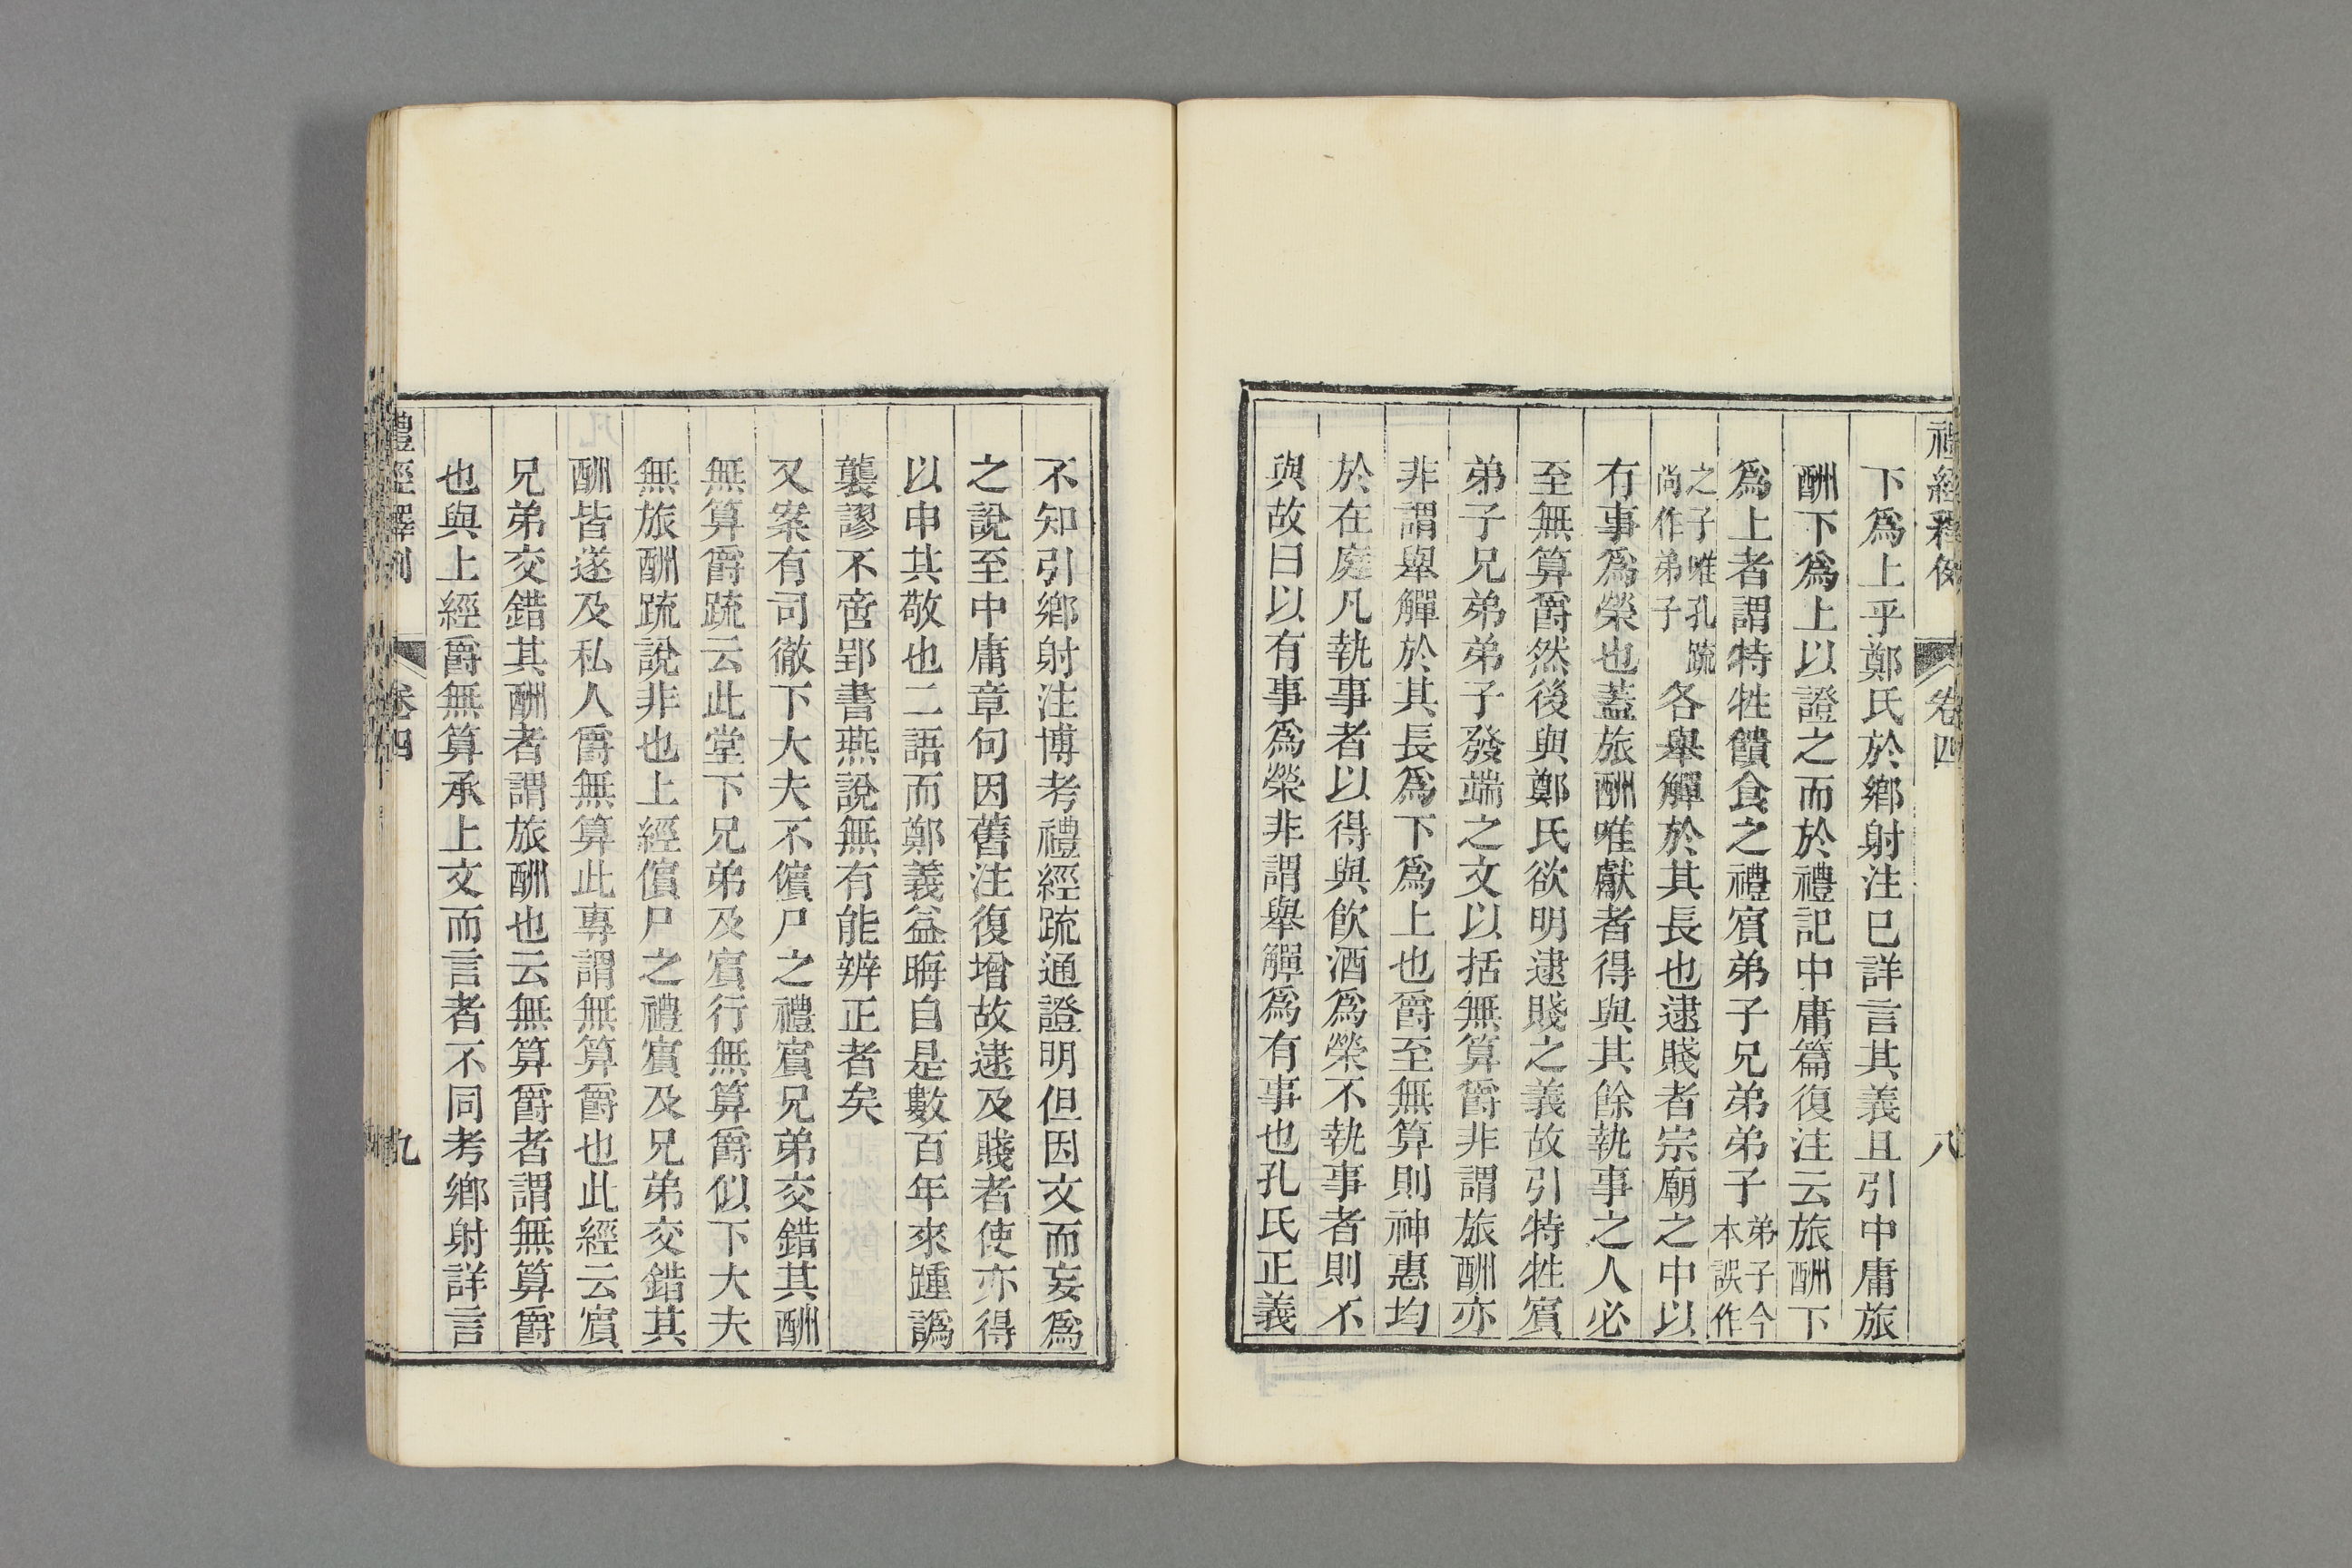 禮經釋例 卷四 八
下爲上乎鄭氏於鄉射注已詳言其義且引中庸旅
酬下爲上以證之而於禮記中庸篇復注云旅酬下
爲上者謂特牲饋食之禮賓弟子兄弟弟子弟子今本誤作
之子唯孔疏尚作弟子各舉觶於其長也逮賤者宗廟之中以
有事爲榮也蓋旅酬唯獻者得與其餘執事之人必
至無算爵然後與鄭氏欲明逮賤之義故引特牲賓
弟子兄弟弟子發端之文以括無算爵非謂旅酬亦
非謂舉觶於其長爲下爲上也爵至無算則神惠均
於在庭凡執事者以得與飲酒爲榮不執事者則不
與故曰以有事爲榮非謂舉觶爲有事也孔氏正義
不知引鄉射注博考禮經疏通證明但因文而妄爲
之說至中庸章句因舊注復增故逮及賤者使亦得
以申其敬也二語而鄭義益晦自是數百年來踵譌
襲謬不啻郢書燕說無有能辨正者矣
又案有司徹下大夫不儐尸之禮賓兄弟交錯其酬
無算爵疏云此堂下兄弟及賓行無算爵似下大夫
無旅酬疏說非也上經儐尸之禮賓及兄弟交錯其
酬皆遂及私人爵無算此專謂無算爵也此經云賓
兄弟交錯其酬者謂旅酬也云無算爵者謂無算爵
也與上經爵無算承上文而言者不同考鄉射詳言
禮經釋例 卷四 九